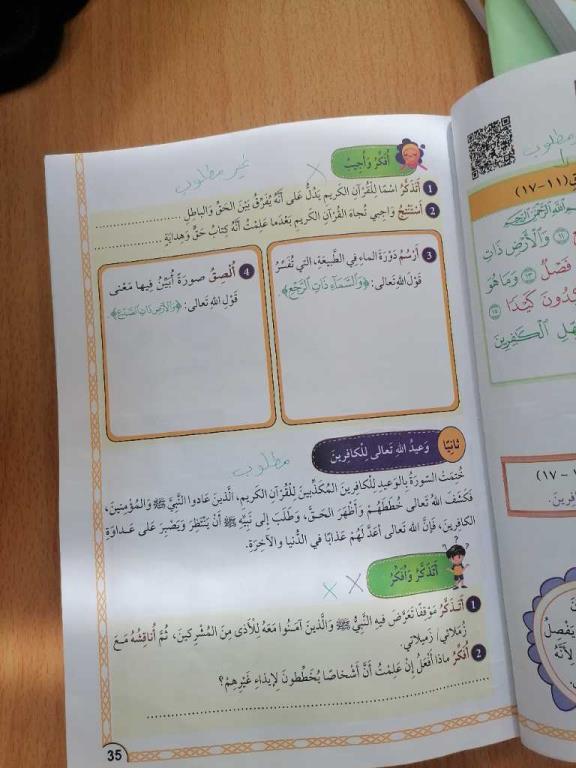 غير مطلوب
أُفَكِّرُ وَأُجِيبُ
1 أَتَذَكَّرُ اسْمًا لِلْقُرْآنِ الكَرِيمِ يَدُلُّ عَلى أَنَّهُ يُفَرِّقُ بَيْنَ الحَقِّ وَالباطِلِ ................
2 أَسْتَنْتِجُ وَاجِبي تُجاهَ القُرْآنِ الكَرِيمِ بَعْدَما عَلِمْتُ أَنَّهُ كِتابُ حَقٍّ وَهِدايَةٍ ................
3 أَرْسُمُ دَوْرَةَ الماءِ في الطَّبيعَةِ، الَّتي تُفَسِّرُ
قَوْلَ اللهِ تَعالى: ﴿وَالسَّمَاءِ ذَاتِ الرَّجْعِ﴾.
4 أُلْصِقُ صورَةً أُبَيِّنُ فيها مَعْنى
قَوْلِ اللهِ تَعالى: ﴿وَالْأَرْضِ ذَاتِ الصَّدْعِ﴾.
مطلوب
ثانِيًا
وَعيدُ اللهِ تَعالى لِلْكافِرينَ
خُتِمَتِ السّورَةُ بِالوَعيدِ لِلْكافِرينَ المُكَذِّبينَ لِلْقُرْآنِ الكَريمِ، الَّذينَ عَادَوا النَّبِيَّ ﷺ وَالمُؤْمِنينَ،
فَكَشَفَ اللهُ تَعالى خُطَطَهُمْ وَأَظْهَرَ الحَقَّ، وَطَلَبَ إِلى نَبِيِّهِ ﷺ أَنْ يَنْتَظِرَ وَيَصْبِرَ عَلى عَداوَةِ
الكافِرينَ، فَإِنَّ اللهَ تَعالى أَعَدَّ لَهُمْ عَذابًا في الدُّنْيا وَالآخِرَةِ.
أَتَذَكَّرُ وَأُفَكِّرُ
1 أَتَذَكَّرُ مَوْقِفًا تَعَرَّضَ فيهِ النَّبِيُّ ﷺ وَالَّذينَ آمَنوا مَعَهُ لِلْأَذى مِنَ المُشْرِكينَ، ثُمَّ أُناقِشُهُ مَعَ
زُمَلائي/ زَميلاتي.
2 أُفَكِّرُ ماذا أَفْعَلُ إِنْ عَلِمْتُ أَنَّ أَشْخاصًا يُخَطِّطونَ لِإِيذاءِ غَيْرِهِمْ؟
................
35
مطلوب
(١١-١٧)
وَالْأَرْضِ ذَاتِ
فَصْلٌ ١٣ وَمَا هُوَ
كَيْدًا ١٥
الْكَافِرِينَ
(١٧ -